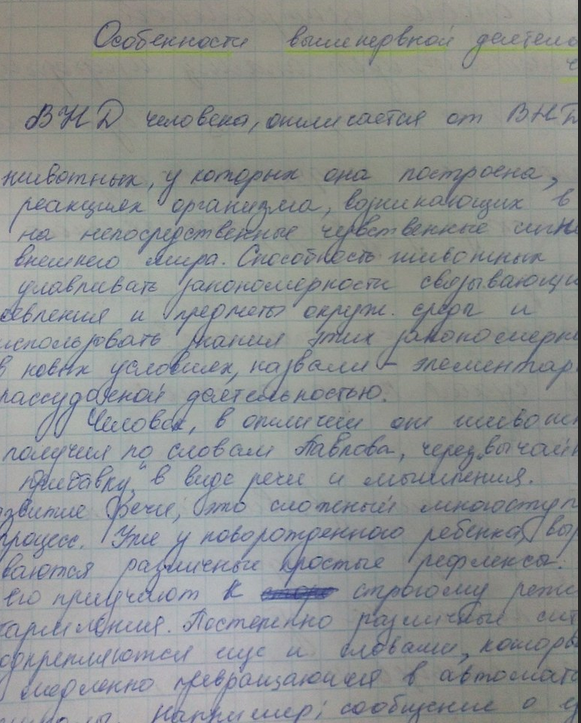 Особенности вышнервной деятель
ч
ВНД человека, отличается от ВНД
животных, у которых она построена,
реакциях организма, возникающих в
на непосредственные чувственные сигн
внешнего мира. Способность животных
улавливать закономерности связывающи
явления и предметы окруж. среды и
использовать знания этих закономерн
в новых условиях, назвали - элементар
рассудочной деятельностью.
Человек, в отличии от животн
получил по словам Павлова, "черезвычайн
прибавку" в виде речи и мышления.
азвитие речи, это сложный многоступ
процесс. Уже у новорожденного ребёнка выр
ваются различные простые рефлексы.
его приучают к строгому режи
кармления. Постепенно различные сиг
одкрепляются еще и словами, которы
медленно превращающиеся в автомат
Например: сообщение о